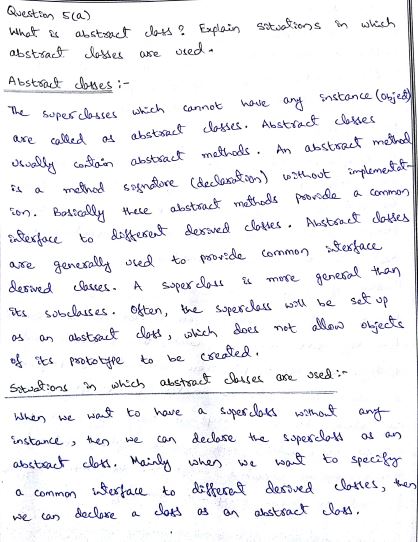 Question 5(a)
What is abstract class? Explain situations in which
abstract classes are used.
Abstract classes :-
The superclasses which cannot have any instance (object)
are called as abstract classes. Abstract classes
usually contain abstract methods. An abstract method
is a method signature (declaration) without implementat-
ion. Basically these abstract methods provide a common
interface to different derived classes. Abstract classes
are generally used to provide common interface
derived classes. A superclass is more general than
its subclasses. Often, the superclass will be set up
as an abstract class, which does not allow objects
of its prototype to be created.
Situations in which abstract classes are used :-
When we want to have a superclass without any
instance, then we can declare the superclass as an
abstract class. Mainly when we want to specify
a common interface to different derived classes, then
we can declare a class as an abstract class.